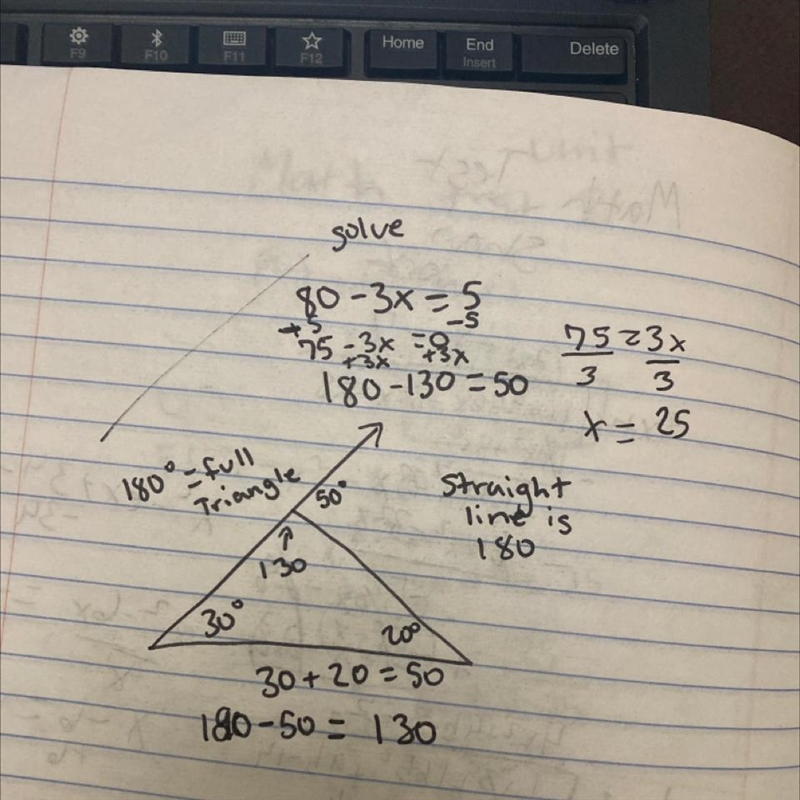 F9 F10 F11 F12 Home End Insert Delete
solve
80 - 3x = 5
-5
75 - 3x = 0
+3x +3x
180 - 130 = 50
75 = 3x
3 3
x = 25
180° = full
Triangle
50°
Straight
line is
180
130
30° 20°
30 + 20 = 50
180 - 50 = 130